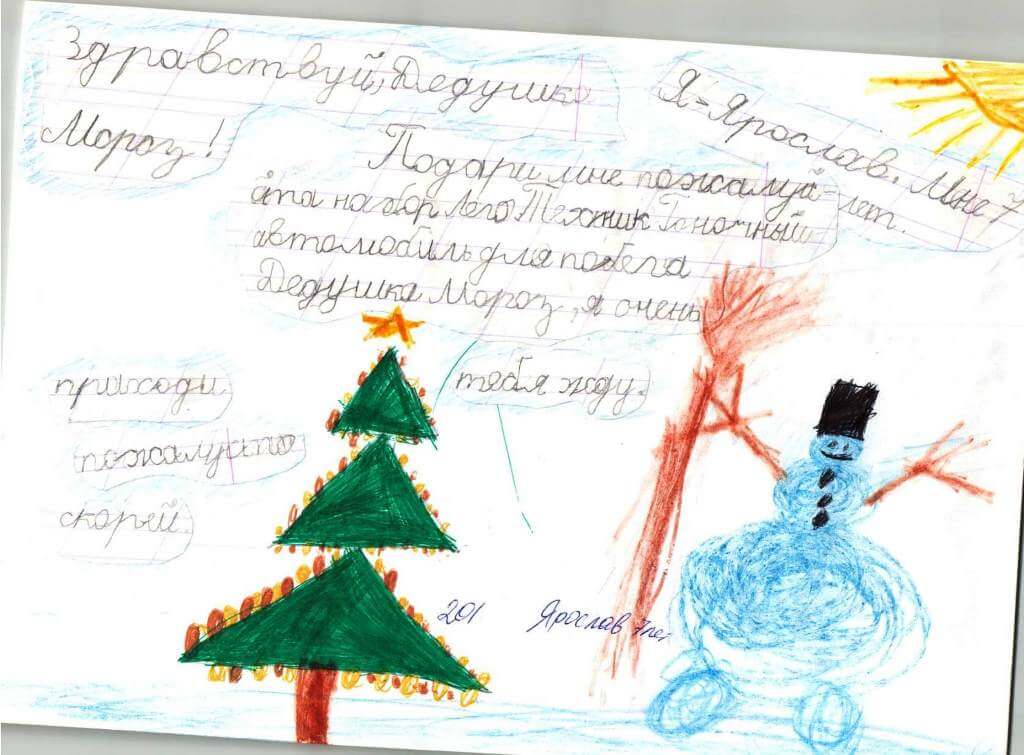 Здравствуй, Дедушка
Мороз!
Я - Ярослав. Мне 7
лет.
Подари мне пожалуй-
ста набор Лего Техник Гоночный
автомобиль для побега
Дедушка Мороз, я очень
тебя жду.
приходи
пожалуйста
скорей.
201
Ярослав 7 лет